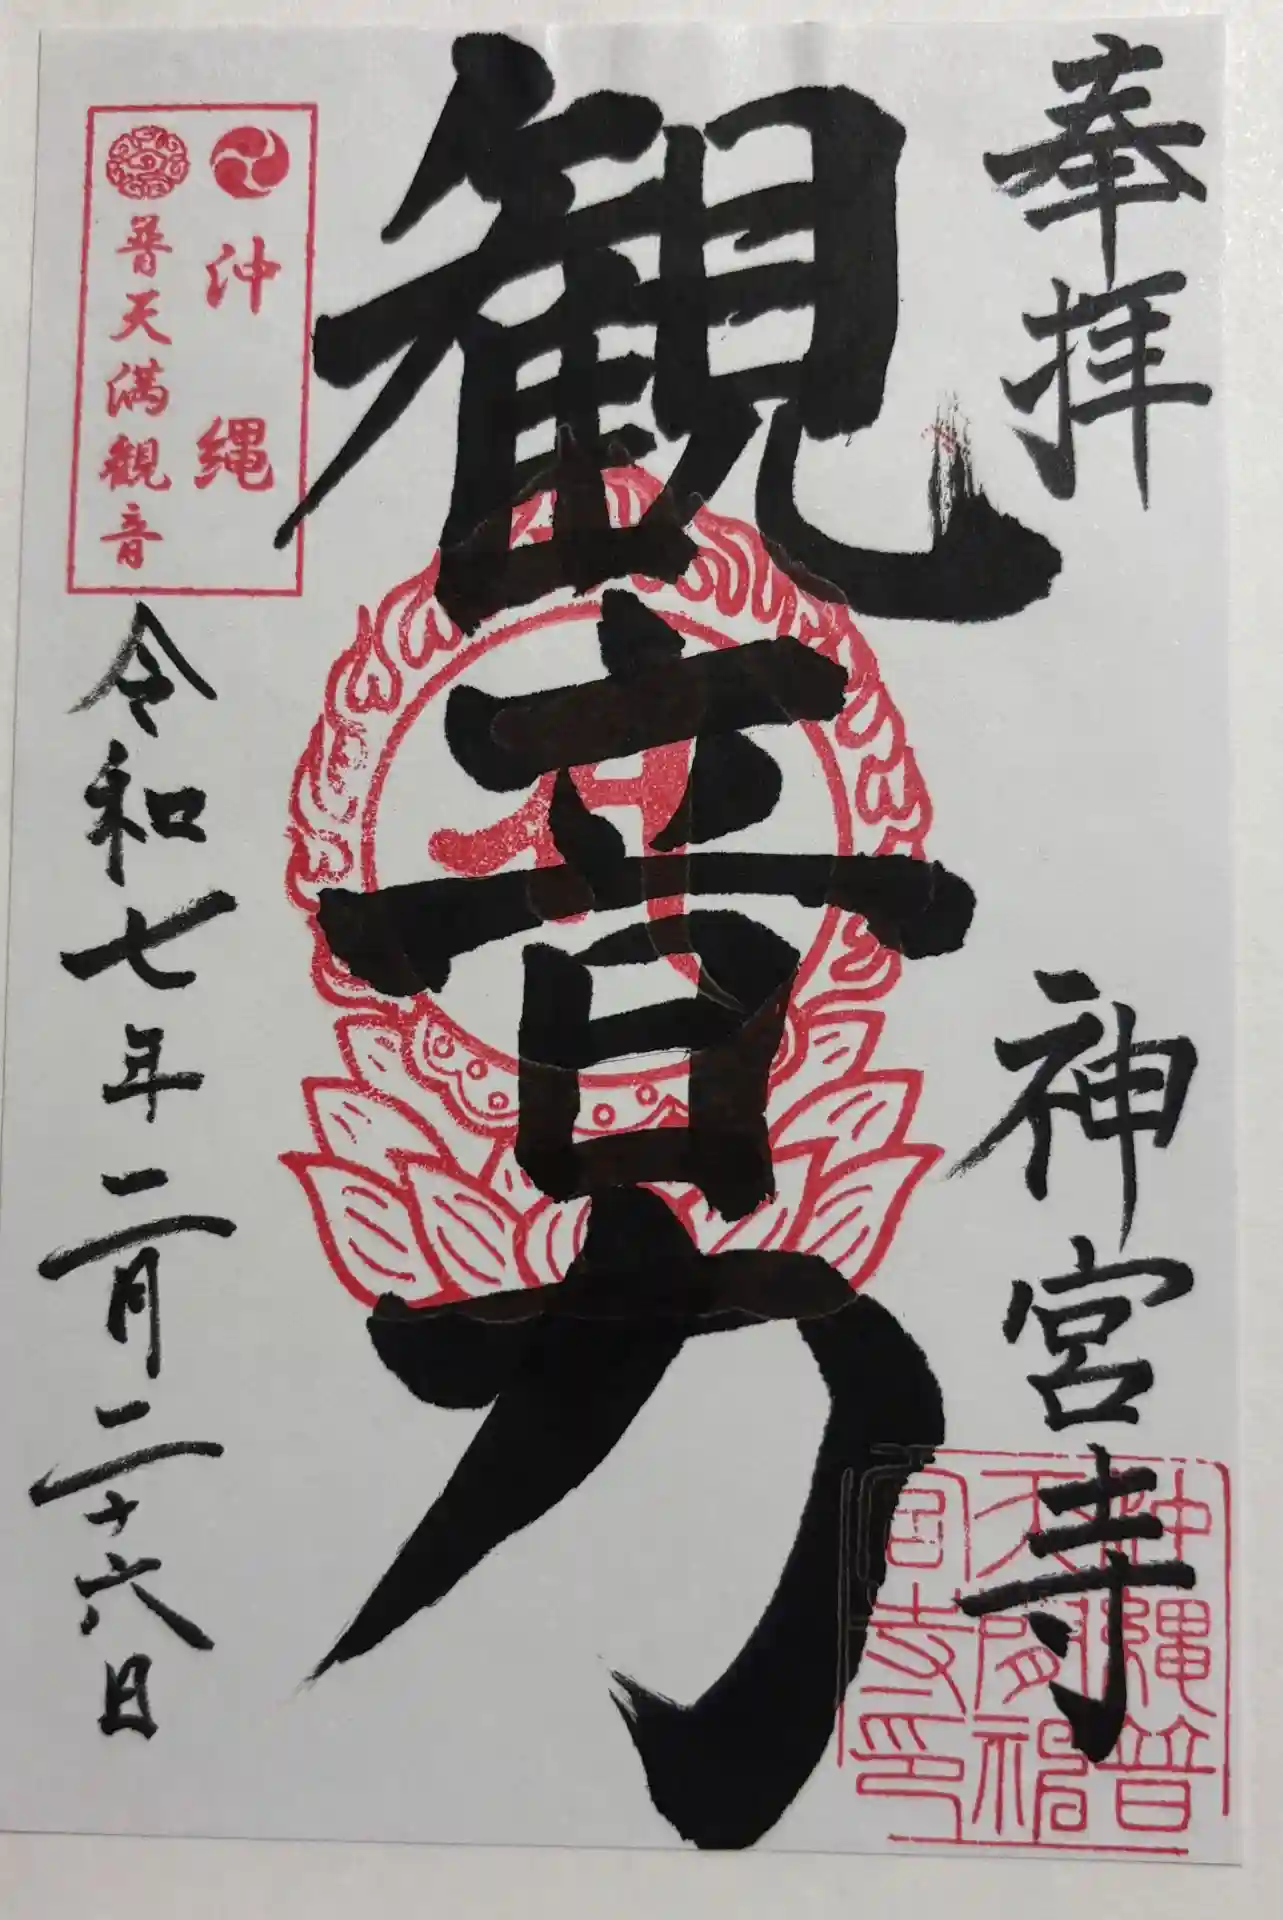 奉拝
神宮寺
観音力
沖縄
普天満観音
令和七年二月二十六日
沖縄普
天間神
宮寺印